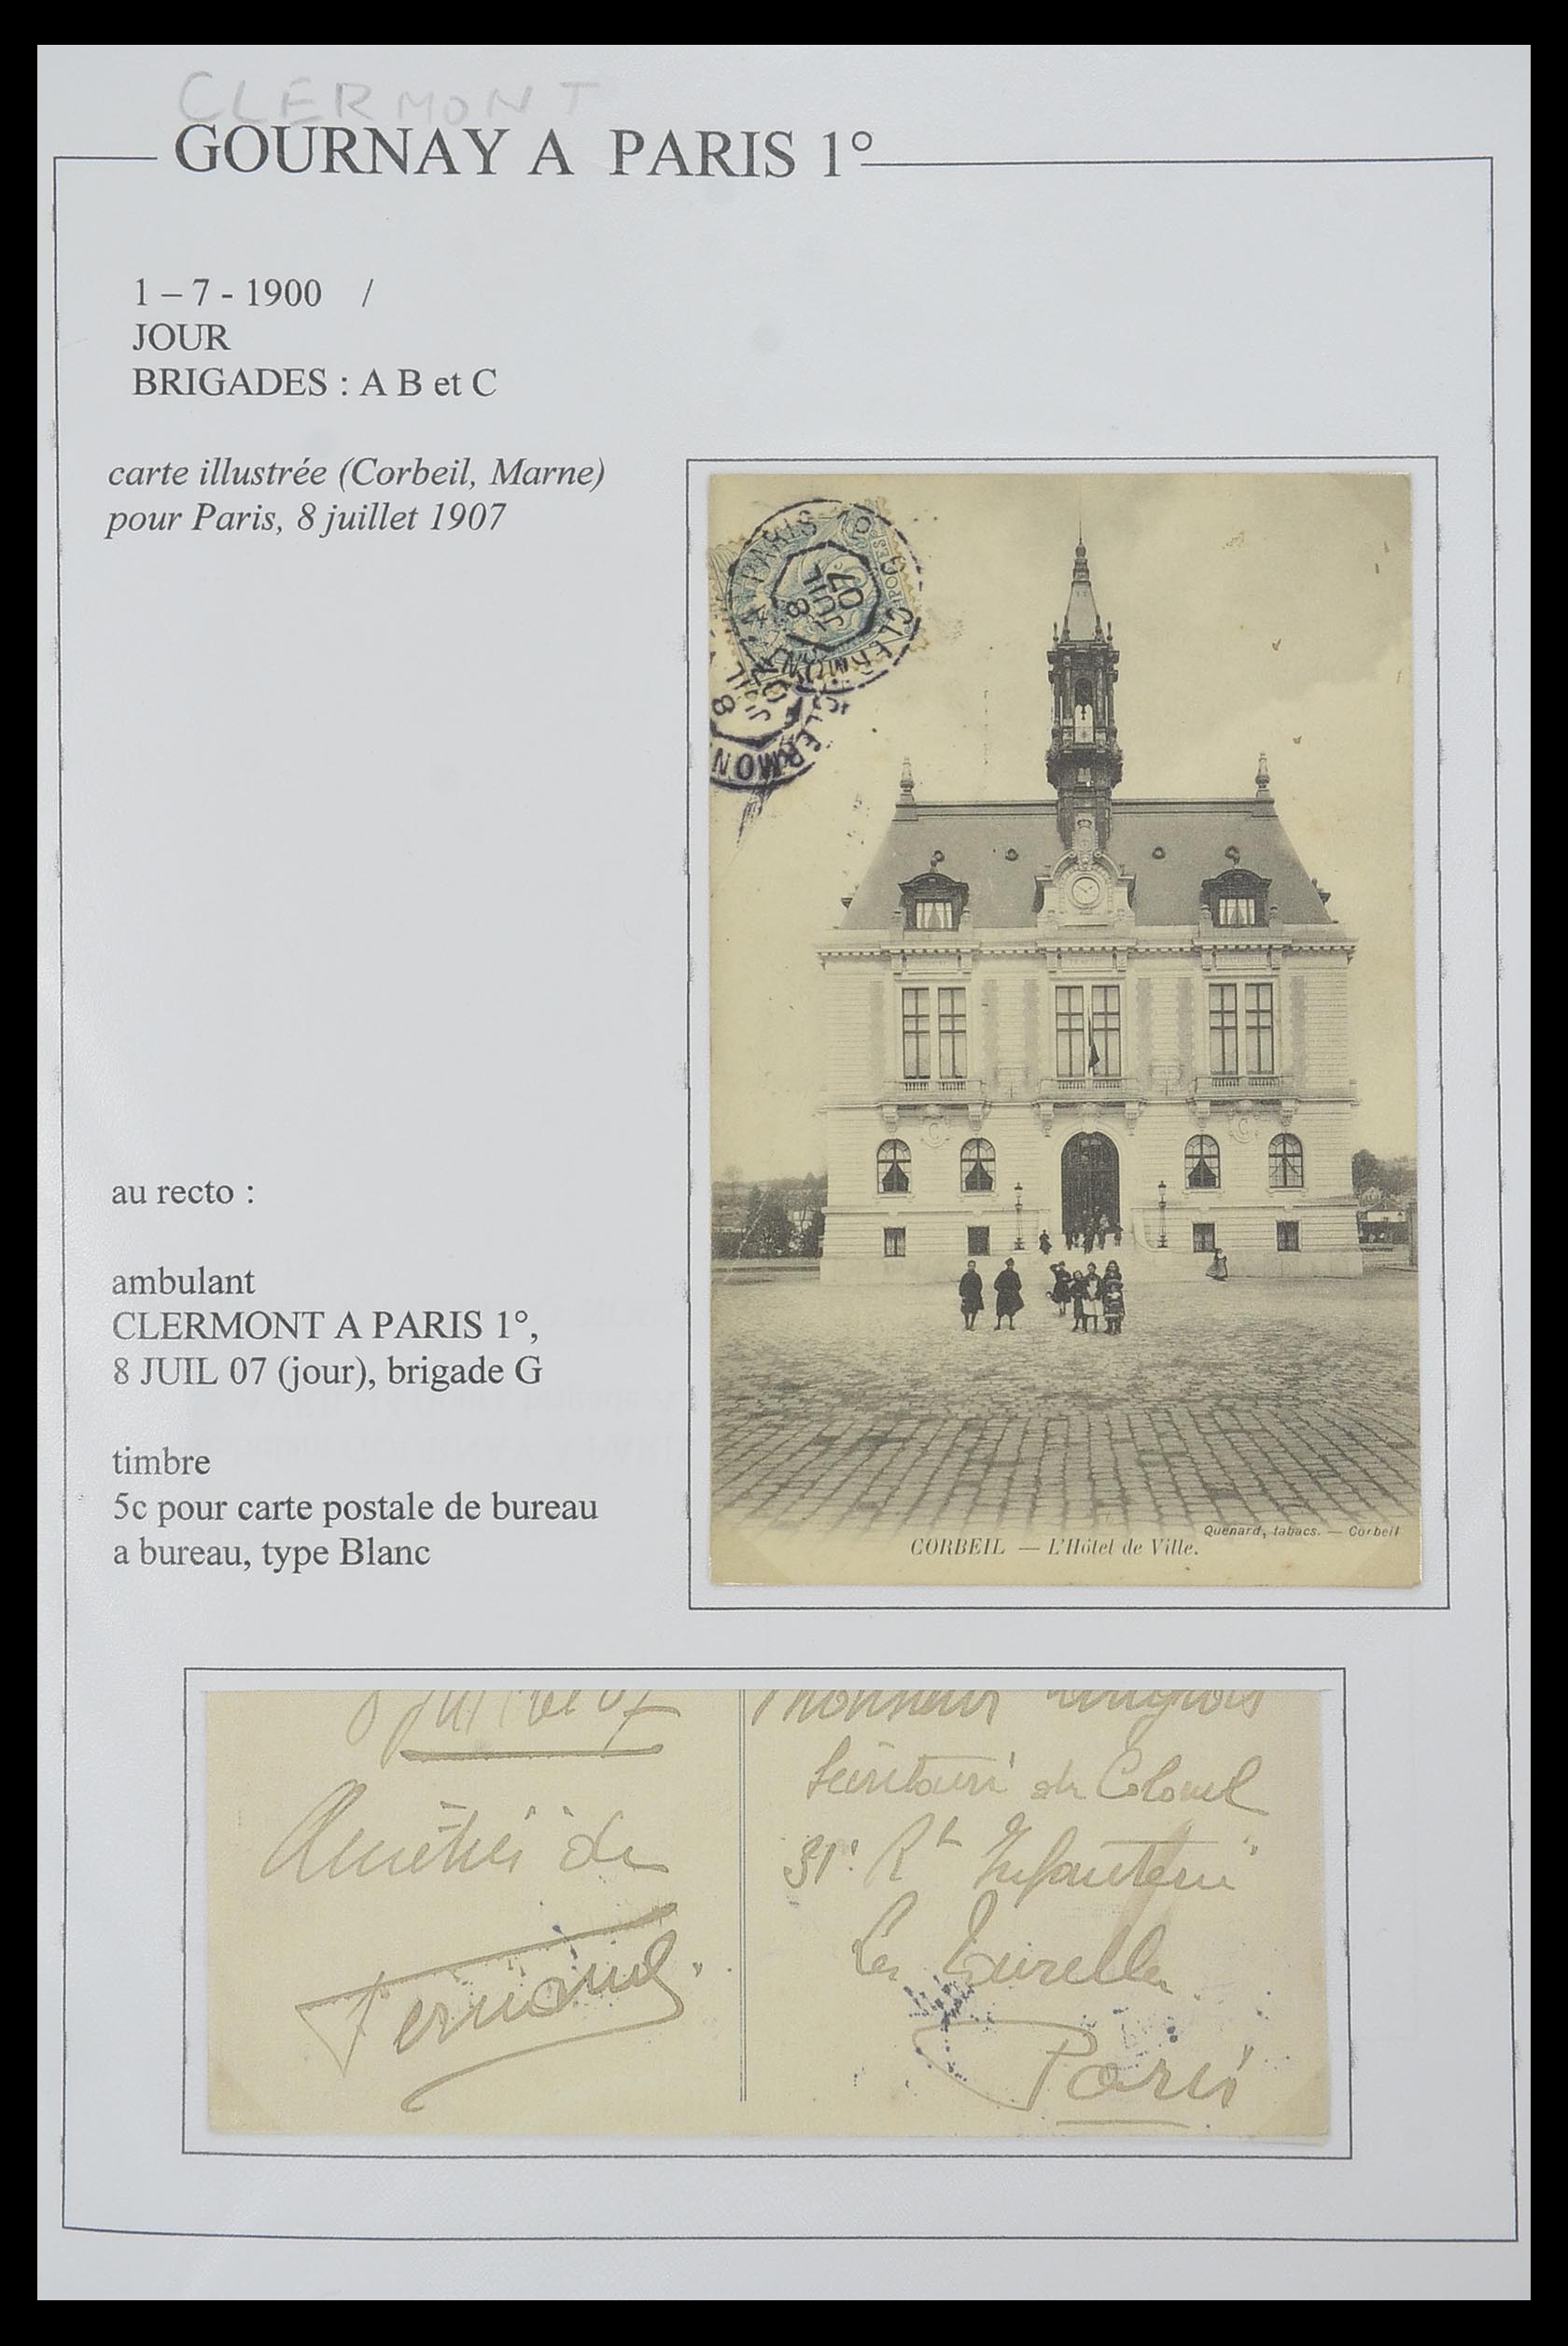 CLERMONT
GOURNAY A PARIS 1°
1 – 7 - 1900 /
JOUR
BRIGADES : A B et C
carte illustrée (Corbeil, Marne)
pour Paris, 8 juillet 1907
CLERMONT A PARIS 1° G
8
JUIL
07
CLERMON
8
au recto :
ambulant
CLERMONT A PARIS 1°,
8 JUIL 07 (jour), brigade G
timbre
5c pour carte postale de bureau
a bureau, type Blanc
Quenard, tabacs. — Corbeil
CORBEIL — L'Hôtel de Ville.
8 juillet 07
Amitiés de
Fernand.
Monsieur
Secrétaire du Colonel
31e Rt Infanterie
Les Tourelles
Paris